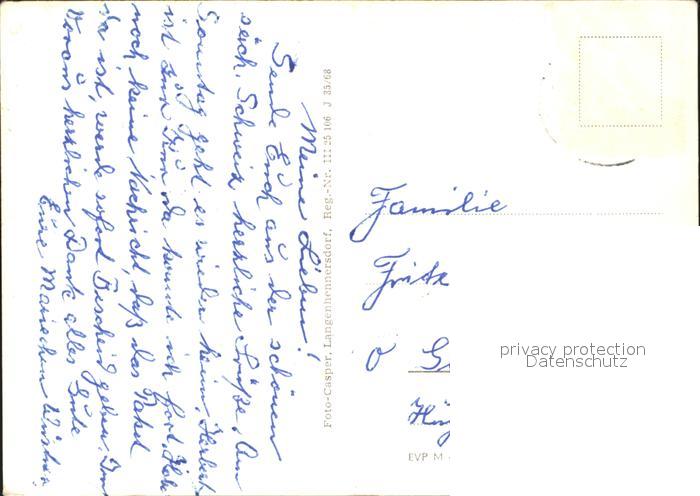 Meine Lieben!
Sende Euch aus der schönen
säch. Schweiz herzliche Grüße. Am
Sonntag geht es wieder heim, Herbert
ist da konnte ich fort. Habe
noch keine Nachricht, daß das Paket
da ist, werde sofort Bescheid geben.
Voraus herzlichen Dank alles Gute
Eure
Foto-Casper, Langenhennersdorf, Reg.-Nr. III 25 106 J 35/68
Familie
Fritz
EVP M
privacy protection
Datenschutz